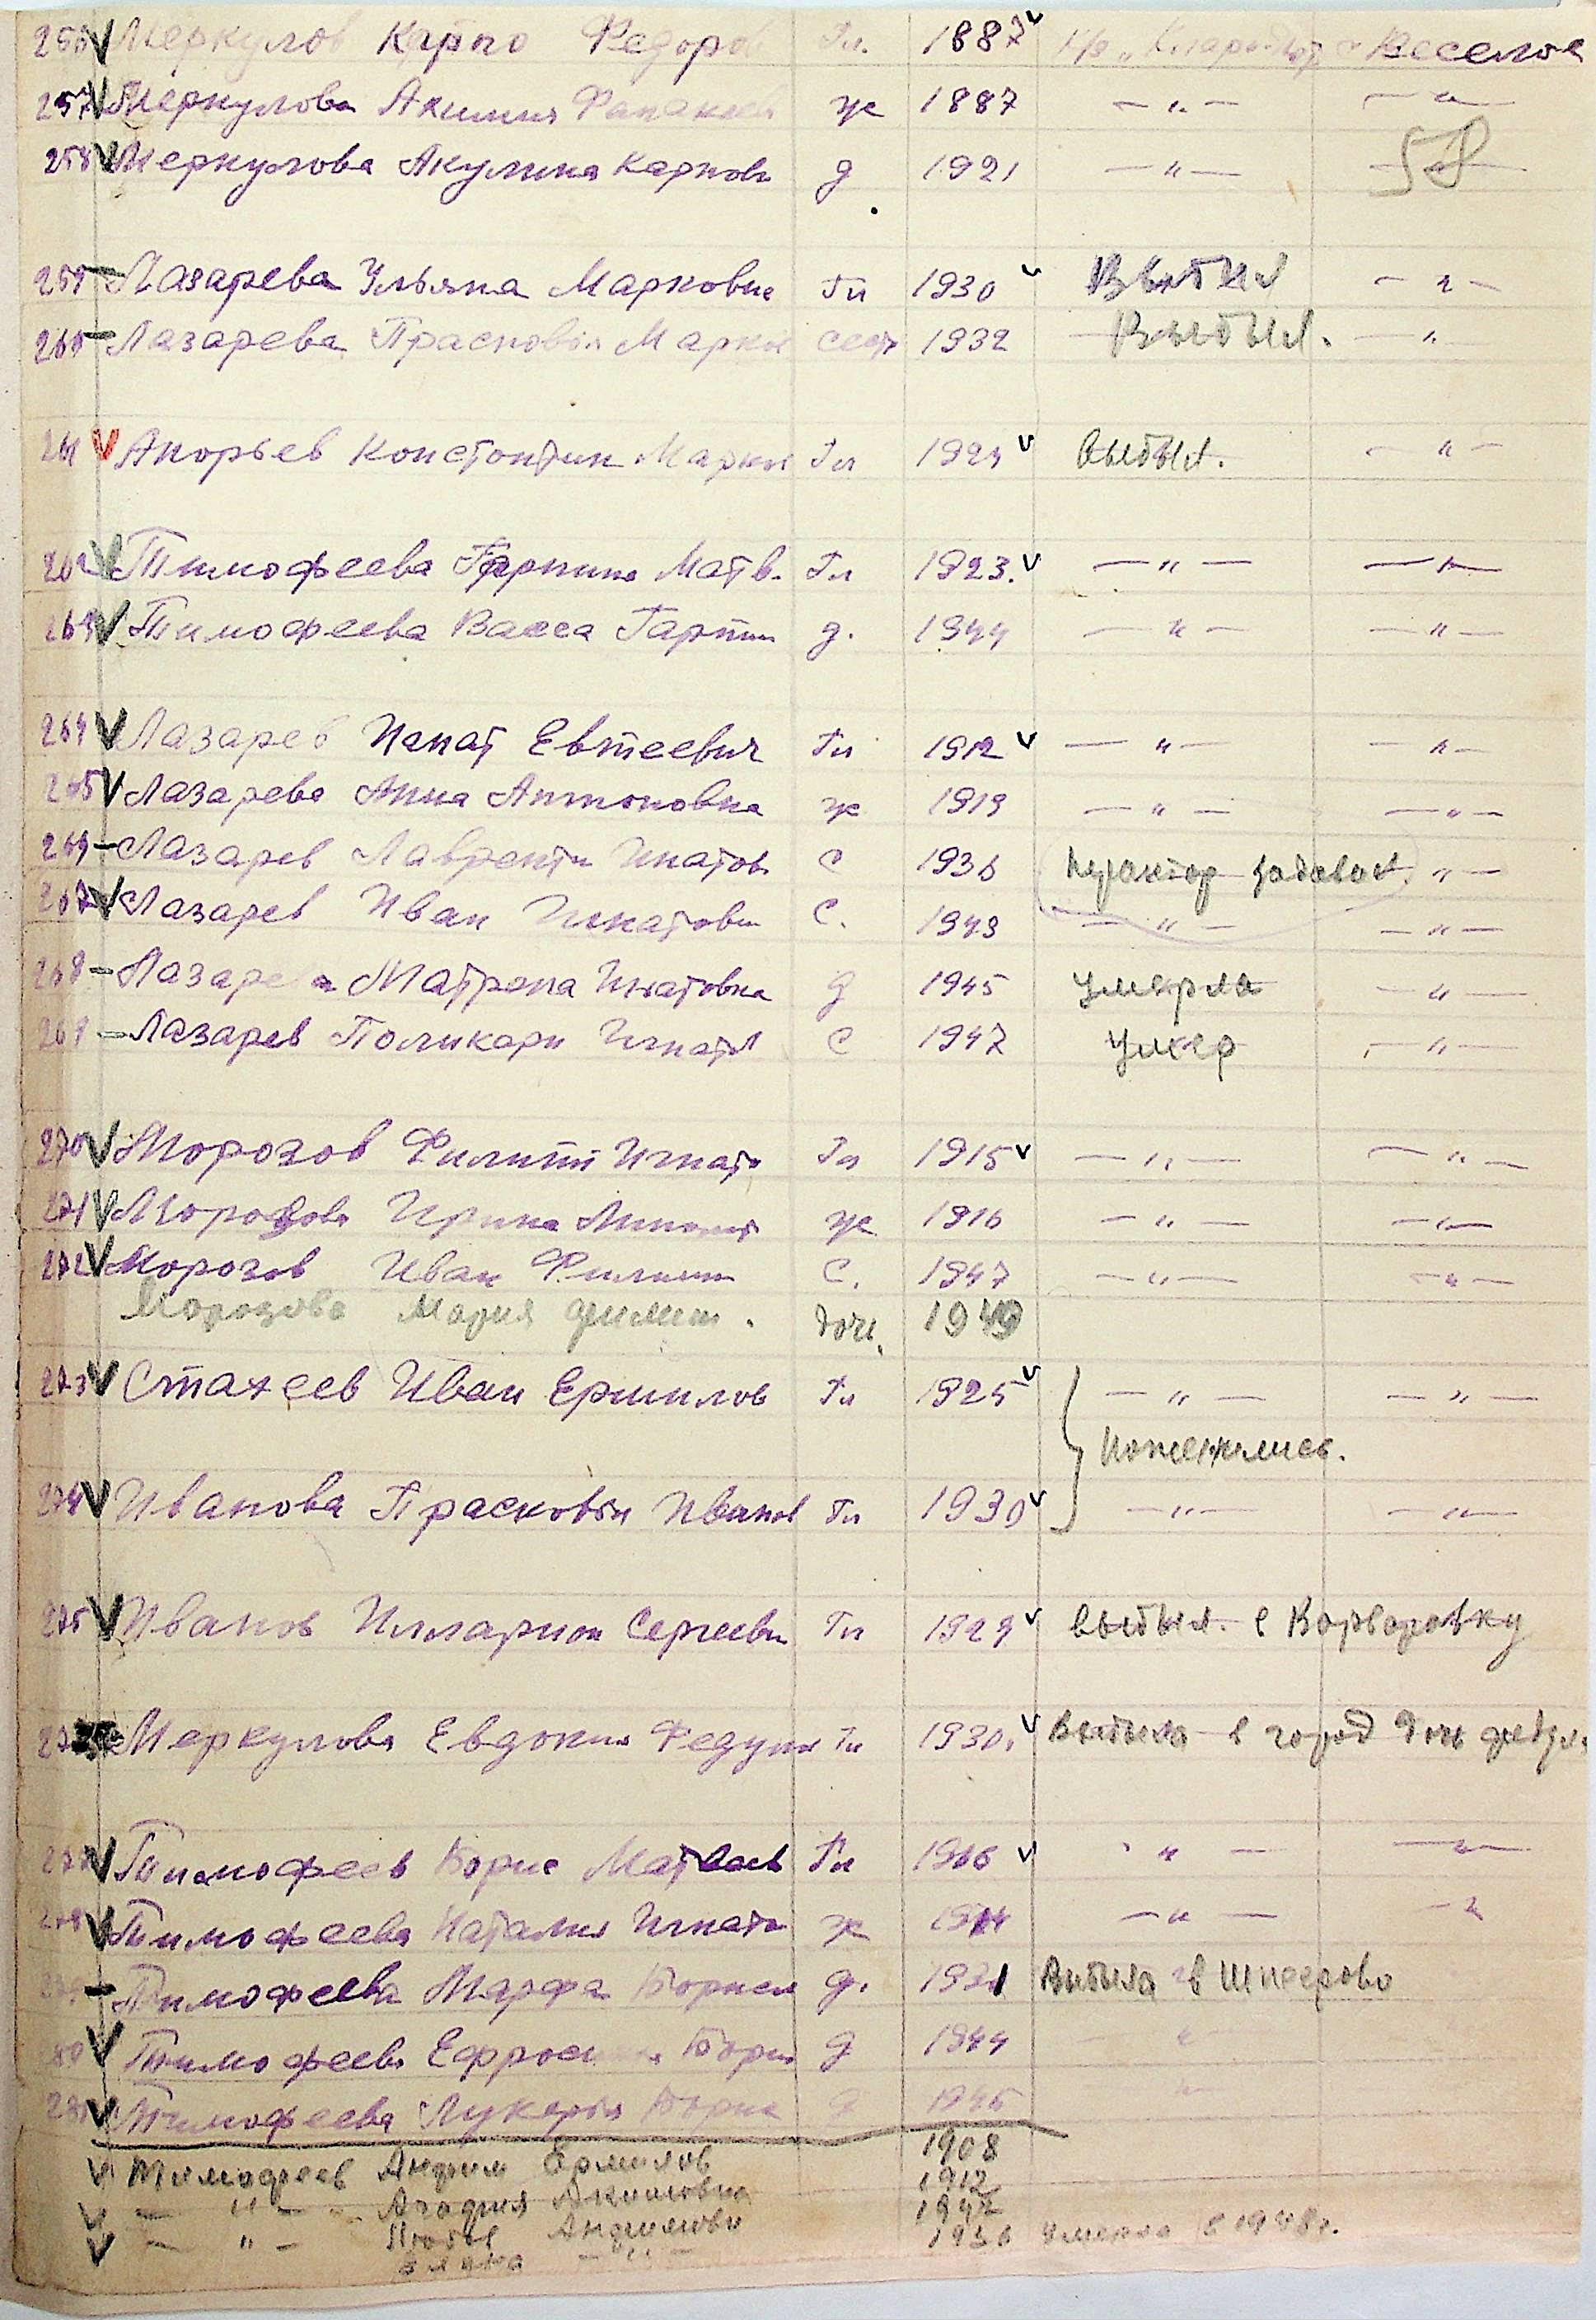 256 Меркулов Карпо Федоров Гл. 1887 с Веселое
257 Меркулова Акимия ж 1887 — " — — " —
258 Меркулова Акулина Карповн д 1921 — " — — " —
58
259 Лазарева Ульяна Марковна Гл 1930 Выбыл — " —
260 Лазарева Прасковія Марков сест 1932 Выбыл. — " —
261 Анорьев Констонтин Марков Гл 1929 Выбыл. — " —
262 Тимофеева Матв. Гл 1923. — " — — " —
263 Тимофеева Васса д. 1944 — " — — " —
264 Лазарев Игнат Евтеевич Гл 1912 — " — — " —
265 Лазарева Анна Антоновна ж 1919 — " — — " —
266 Лазарев Лаврентий Игнатов С 1936 трактор задавил — " —
267 Лазарев Иван Игнатович С. 1943 — " — — " —
268 Лазарева Матрена Игнатовна д 1945 умерла — " —
269 Лазарев Поликарп Игнат С 1947 умер — " —
270 Морозов Филипп Игнат Гл 1915 — " — — " —
271 Морозова Ирина ж 1916 — " — — " —
272 Морозов Иван Филипп С. 1947 — " — — " —
Морозова Мария филип. доч. 1949
273 Стахеев Иван Ермилов Гл 1925 — " — — " —
поженились.
274 Иванова Прасковія Иванов Гл 1930 — " — — " —
275 Иванов Илларион Сергеевич Гл 1929 выбыл. в Варваровку
276 Меркулова Евдокия Гл 1930. выбыла в город
277 Тимофеев Борис Матвеев Гл 1916 — " — — " —
278 Тимофеева Наталия Игнат ж 1914 — " — — " —
279 Тимофеева Марфа Борисов д. 1931 Выбыла в Шпеерово
280 Тимофеева Ефросиния Борис д 1944 — " —
281 Тимофеева Лукерія Борис д 1946 — " —
Тимофеев Анфим Ермилов 1908
— " — Агафия Акимовна 1912
— " — Любов Анфимовн 1947
Елена — " — 1936 умерла в 1948 г.